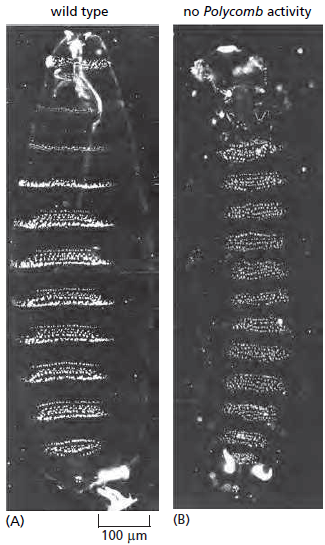 wild type
no Polycomb activity
(A)
100 μm
(B)